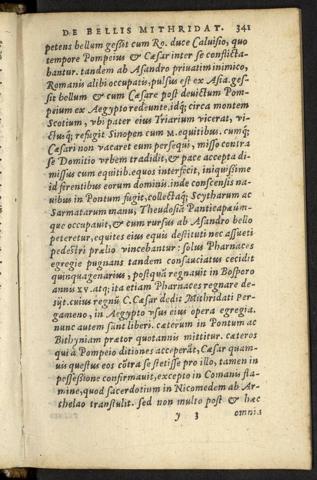 DE BELLIS MITHRIDAT. 341
petens bellum gessit cum Ro. duce Caluisio, quo
tempore Pompeius & Cæsar inter se conflicta-
bantur. tandem ab Asandro priuatim inimico,
Romanis alibi occupatis, pulsus est ex Asia. ges-
sit bellum & cum Cæsare post deuictum Pom-
peium ex Aegypto redeunte. idq; circa montem
Scotium, vbi pater eius Triarium vicerat, vi-
ctusq; refugit Sinopen cum M. equitibus. cumq;
Cæsari non vacaret eum persequi, misso contra
se Domitio vrbem tradidit, & pace accepta di-
missus cum equitib. equos interfecit, iniquissime
id ferentibus eorum dominis. inde conscensis na-
uibus in Pontum fugit, collectaq; Scytharum ac
Sarmatarum manu, Theodosiā Panticapæúm-
que occupauit, & cum rursus ab Asandro bello
peteretur, equites eius equis destituti nec assueti
pedestri prælio vincebantur: solus Pharnaces
egregie pugnans tandem consauciatus cecidit
quinquagenarius, postquā regnauit in Bosporo
annis XV. atq; ita etiam Pharnaces regnare de-
sijt. cuius regnū C. Cæsar dedit Mithridati Per-
gameno, in Aegypto vsus eius opera egregia.
nunc autem sunt liberi. cæterum in Pontum ac
Bithyniam prætor quotannis mittitur. cæteros
qui à Pompeio ditiones acceperāt, Cæsar quam-
uis questus eos cōtra se stetisse pro illo, tamen in
possessione confirmauit, excepto in Comanis fla-
mine, quod sacerdotium in Nicomedem ab Ar-
chelao transtulit. sed non multo post & hæc
y 3 omnia